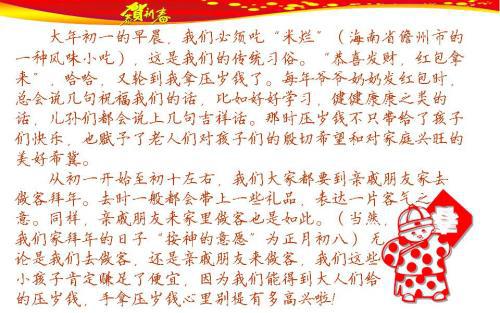 贺新春
大年初一的早晨，我们必须吃“米烂”（海南省儋州市的
一种风味小吃），这是我们的传统习俗。“恭喜发财，红包拿
来”，哈哈，又轮到我拿压岁钱了。每年爷爷奶奶发红包时，
总会说几句祝福我们的话，比如好好学习，健健康康之类的
话，儿孙们都会说上几句吉祥话。那时压岁钱不只带给了孩子
们快乐，也赋予了老人们对孩子们的殷切希望和对家庭兴旺的
美好希冀。
从初一开始至初十左右，我们大家都要到亲戚朋友家去
做客拜年。去时一般都会带上一些礼品，表达一片客气之
意。同样，亲戚朋友来家里做客也是如此。（当然，
我们家拜年的日子“按神的意愿”为正月初八）无
论是我们去做客，还是亲戚朋友来做客，我们这些
小孩子肯定赚足了便宜，因为我们能得到大人们给
的压岁钱，手拿压岁钱心里别提有多高兴啦！
春